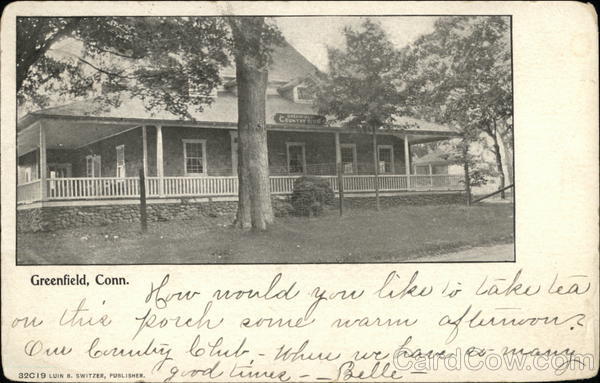 COUNTRY CLUB
Greenfield, Conn.
How would you like to take tea
on this porch some warm afternoon?
Our Country Club, - Where we have so many
good times - Belle -
32C19 LUIN B. SWITZER, PUBLISHER.
CardCow.com